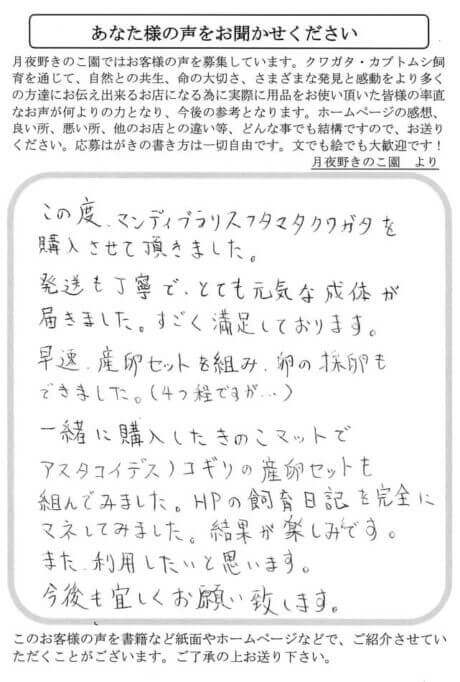 あなた様の声をお聞かせください
月夜野きのこ園ではお客様の声を募集しています。クワガタ・カブトムシ飼
育を通じて、自然との共生、命の大切さ、さまざまな発見と感動をより多く
の方達にお伝え出来るお店になる為に実際に用品をお使い頂いた皆様の率直
なお声が何よりの力となり、今後の参考となります。ホームページの感想、
良い所、悪い所、他のお店との違い等、どんな事でも結構ですので、お送り
ください。応募はがきの書き方は一切自由です。文でも絵でも大歓迎です！
月夜野きのこ園 より
この度、マンディブラリスフタマタクワガタを
購入させて頂きました。
発送も丁寧で、とても元気な成体が
届きました。すごく満足しております。
早速、産卵セットを組み、卵の採卵も
できました。(4つ程ですが…)
一緒に購入したきのこマットで
アスタコイデスノコギリの産卵セットも
組んでみました。HPの飼育日記を完全に
マネしてみました。結果が楽しみです。
また、利用したいと思います。
今後も宜しくお願い致します。
このお客様の声を書籍など紙面やホームページなどで、ご紹介させてい
ただくことがございます。ご了承の上お送り下さい。